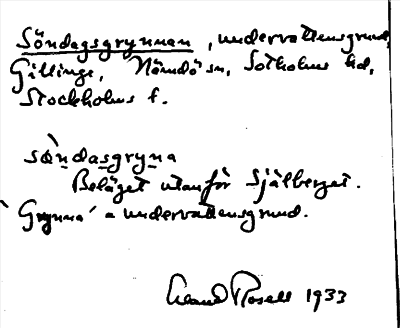 Söndagsgrynnan, undervattensgrund,
Gillinge, Nämdö sn, Sotholms hd,
Stockholms l.
sœ̀ndasgryna
Beläget utanför Själberget.
`Grynna´ = undervattensgrund.
Rosell 1933